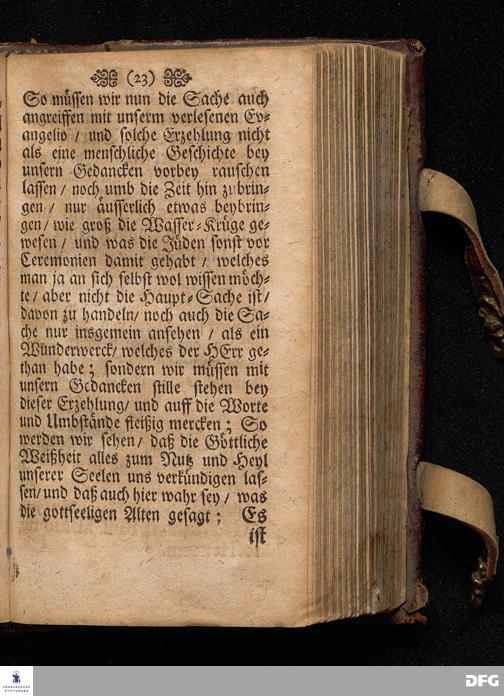 (23)
So müssen wir nun die Sache auch
angreiffen mit unserm verlesenen Ev-
angelio / und solche Erzehlung nicht
als eine menschliche Geschichte bey
unsern Gedancken vorbey rauschen
lassen / noch umb die Zeit hin zubrin-
gen / nur äusserlich etwas beybrin-
gen / wie groß die Wasser-Krüge ge-
wesen / und was die Jüden sonst vor
Ceremonien damit gehabt / welches
man ja an sich selbst wol wissen möch-
te / aber nicht die Haupt-Sache ist /
davon zu handeln / noch auch die Sa-
che nur insgemein ansehen / als ein
Wunderwerck / welches der HErr ge-
than habe ; sondern wir müssen mit
unsern Gedancken stille stehen bey
dieser Erzehlung / und auff die Worte
und Umbstände fleißig mercken ; So
werden wir sehen / daß die Göttliche
Weißheit alles zum Nutz und Heyl
unserer Seelen uns verkündigen las-
sen / und daß auch hier wahr sey / was
die gottseeligen Alten gesagt ; Es
ist
FRANCKESCHE
STIFTUNGEN
DFG